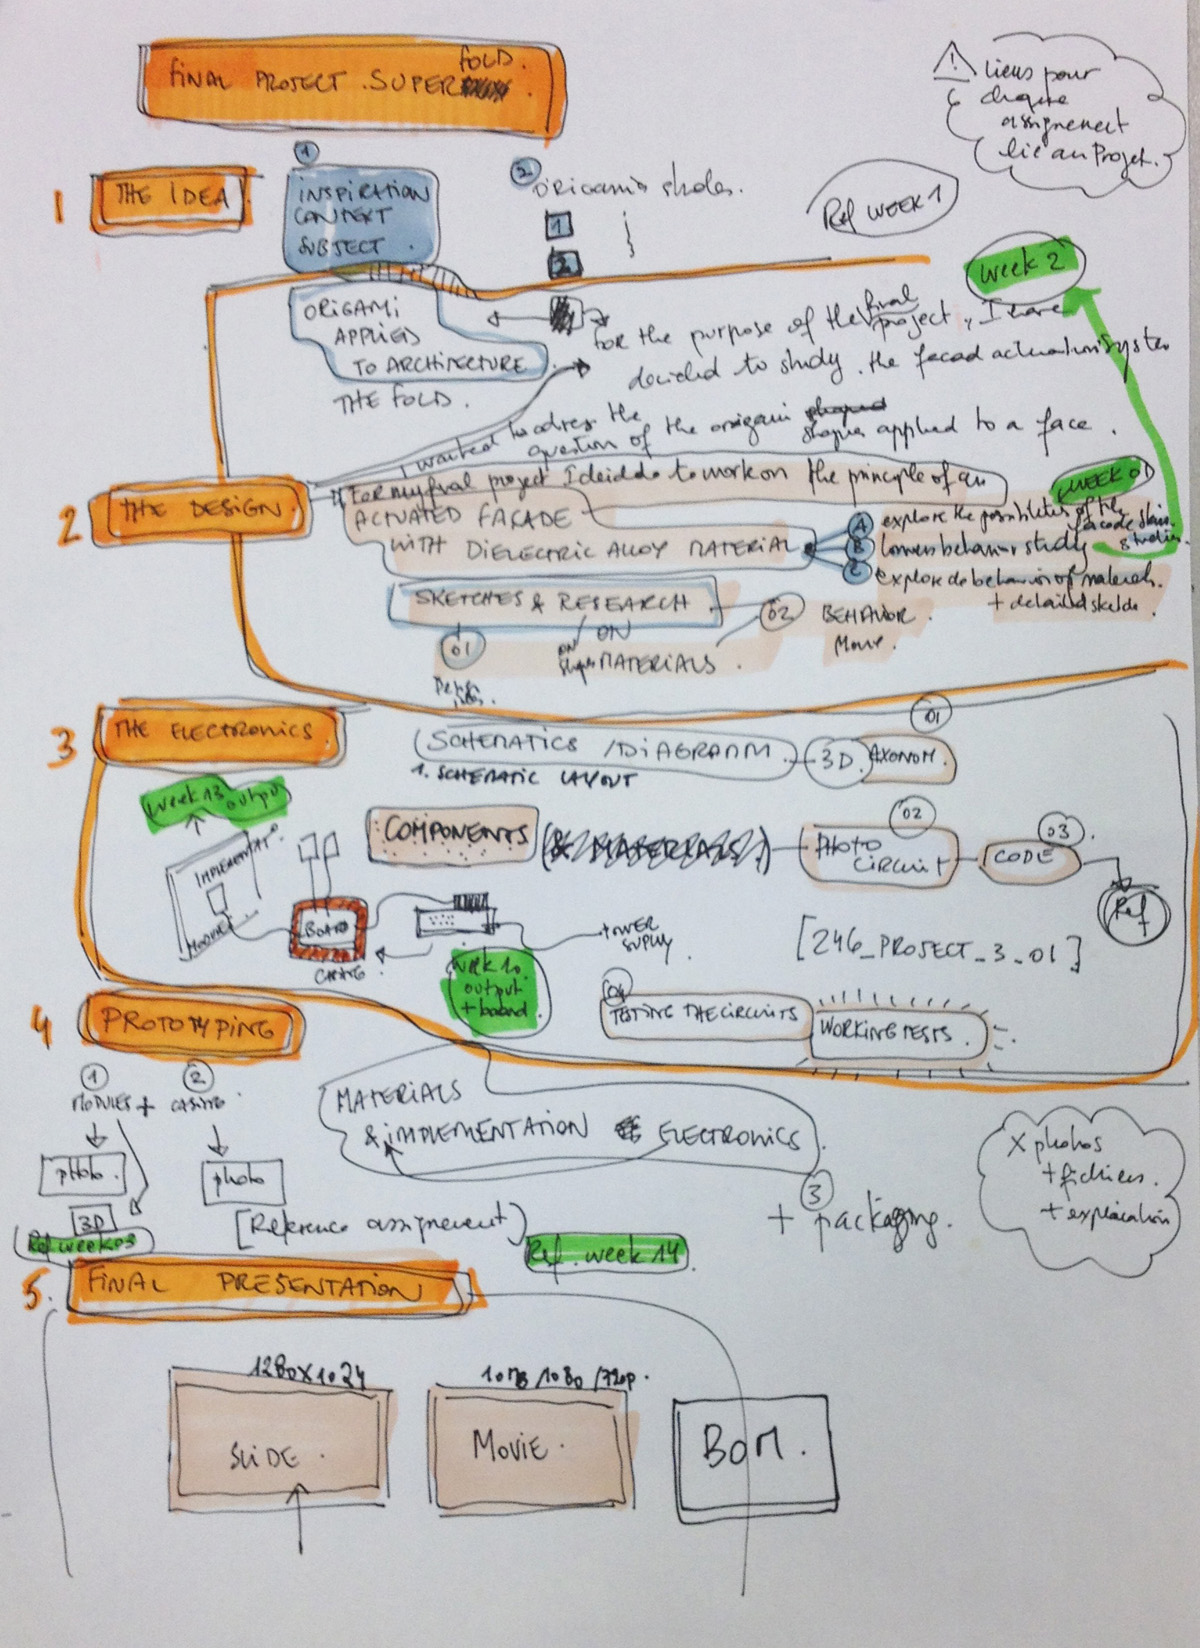 FOLD.
FINAL PROJECT . SUPER
⚠ liens pour
chaque
assignement
lié au Projet.
1 THE IDEA
1
INSPIRATION
CONTEXT
SUBJECT .
2 ORIGAMI
1
2
Ref WEEK 1
week 2
ORIGAMI
APPLIED
TO ARCHITECTURE
THE FOLD .
for the purpose of the final project, I have
decided to study . the facad actuation system
I wanted to adress the
question of the origami shapes applied to a face .
2 THE DESIGN .
For my final project I decided to work on the principle of an
ACTUATED FACADE
WITH DIELECTRIC ALLOY MATERIAL
week 01
A explore the possibilities of the
facade skin.
B louvers behavior study
studies
C explore de behavior of materials.
+ detailed
SKETCHES & RESEARCH
ON
01
on shapes MATERIALS .
02 BEHAVIOR .
Movie .
3 THE ELECTRONICS
SCHEMATICS / DIAGRAMM
3D
01
AXONOM.
1. SCHEMATIC LAYOUT
week 13 output
COMPONENTS
(& MATERIALS)
02
PHOTO
CIRCUIT
03
CODE
Ref
IMPLEMENTAT°
MODULE
BOARD
CASING
POWER
SUPPLY
[246_PROJECT_3_01]
week 10
output
+ board
04
TESTING THE CIRCUITS
WORKING TESTS .
4 PROTOTYPING
1
MODULES +
2
CASING
photo .
photo
3D
Ref week 03
MATERIALS
& IMPLEMENTATION ELECTRONICS
[Reference assignement]
Ref . week 14
3
+ packaging.
X photos
+ fichiers.
+ explication
5. FINAL PRESENTATION
1280 X 1024
SLIDE .
10MB /1080 /720p .
MOVIE .
BOM .